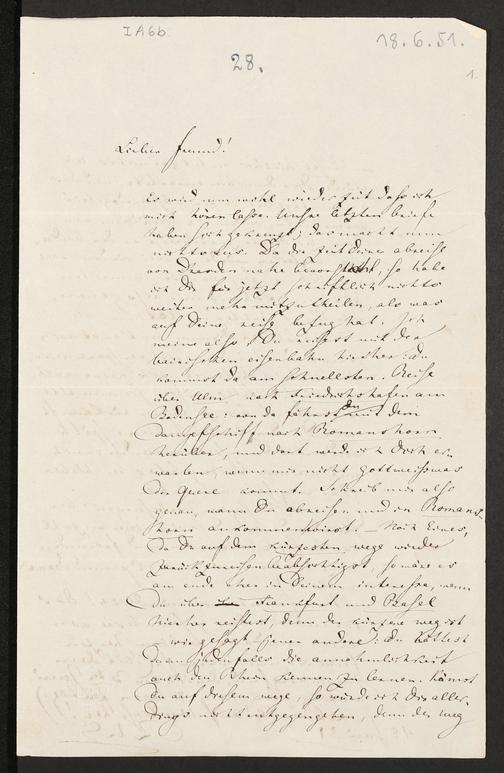 IA6b
18.6.51.
28.
1.
Lieber Freund!
Es wird nun wohl wieder Zeit daß ich
mich hören lasse. Unsre letzten briefe
haben sich gekreuzt; das macht nun
nichts aus. Da die Zeit Deiner abreise
von Dresden nahe bevorsteht, so habe
ich Dir für jetzt schriftlich nichts
weiter mehr mitzutheilen, als was
auf Deine reise bezug hat. Ich
meine also Du reisest mit der
bairischen eisenbahn hierher: du
kommst da am schnellsten. Reise
über Ulm nach Friedrichshafen am
Bodensee: von da fährst du mit dem
Dampfschiff nach Romanshorn
herüber, und dort werde ich Dich er-
warten, wenn mir nicht gottweißwas
die Quere kommt. Schreib mir also
genau, wann Du abreisen und in Romans-
horn ankommen wirst. – Noch Eines,
da Du auf dem kürzesten wege wieder
zurückzureisen beabsichtigst, so wäre es
am ende eher in Deinem interesse, wenn
Du über Frankfurt und Basel
hierher reistest, denn der kürzere weg ist
– wie gesagt – jener andere: Du hättest
dann jedenfalls die annehmlichkeit
auch den Rhein kennen zu lernen. Kämst
Du auf diesem wege, so würde ich Dir aller-
dings nicht entgegengehen, denn der weg